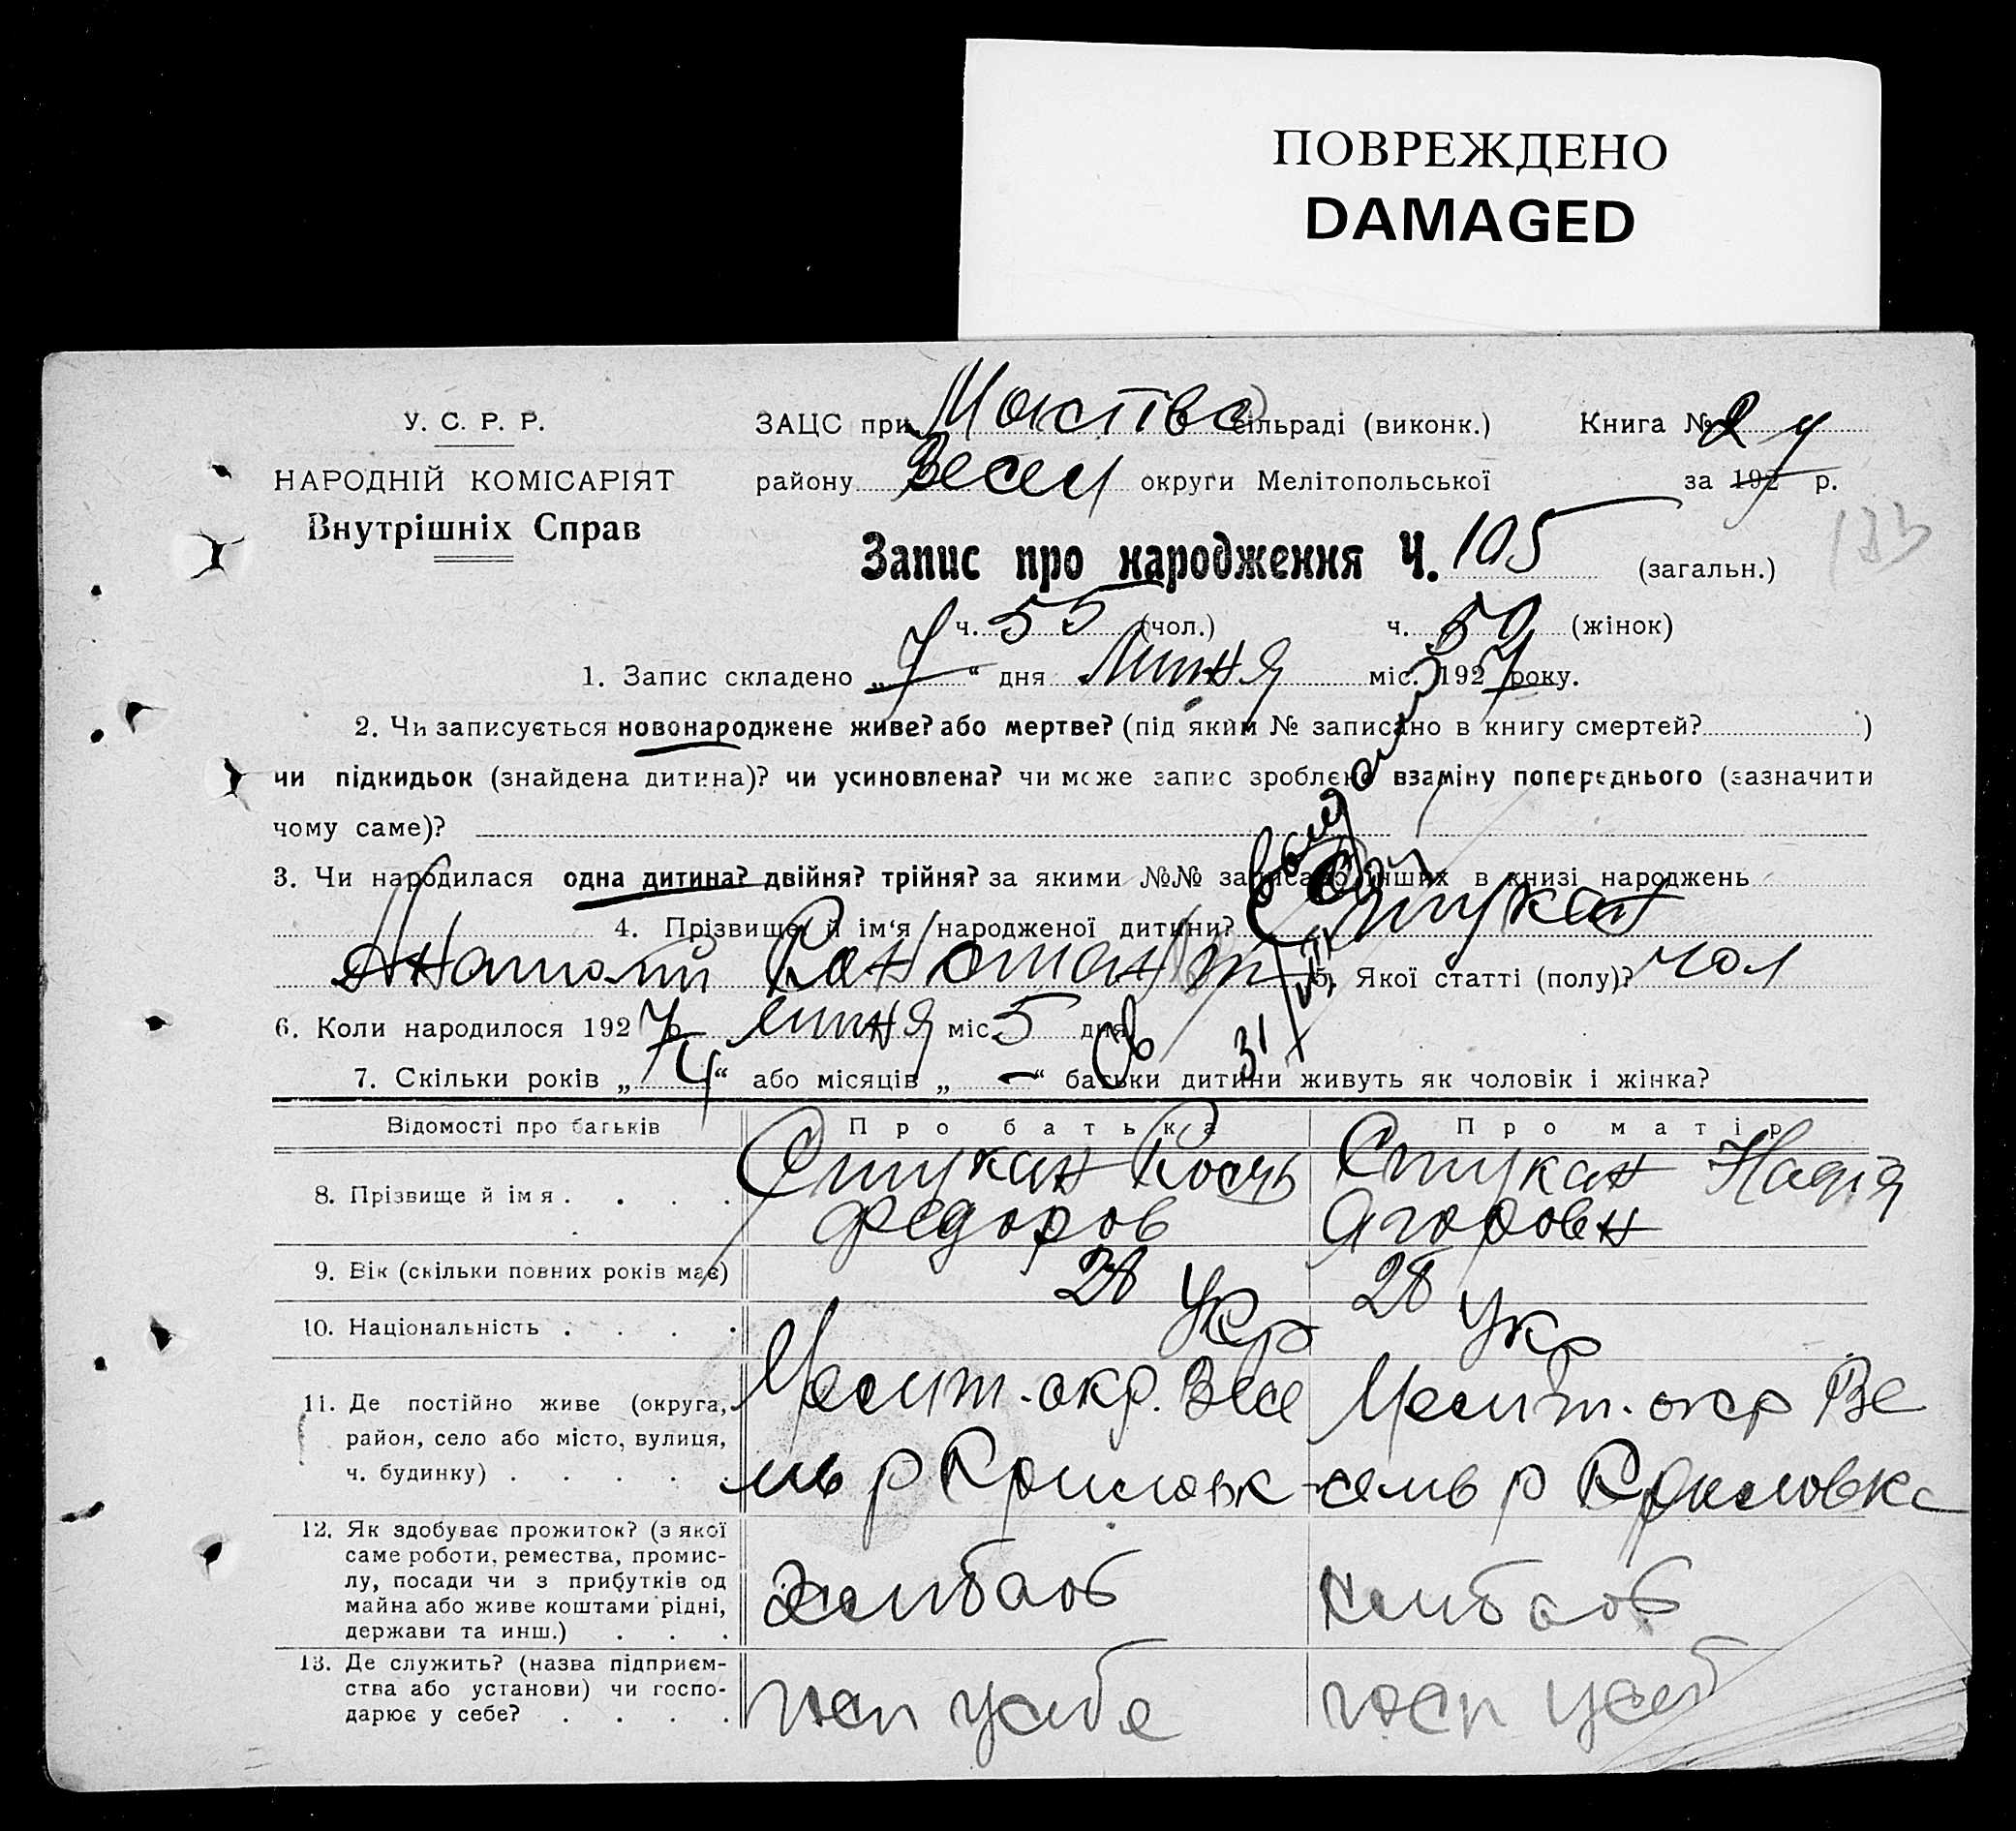 ПОВРЕЖДЕНО
DAMAGED
У. С. Р. Р.
НАРОДНІЙ КОМІСАРІЯТ
Внутрішніх Справ
ЗАЦС при сільраді (виконк.) Книга № 2
району Весел округи Мелітопольської за 1927 р.
Запис про народження Ч. 105 (загальн.)
ч. 55 (чол.) ч. 50 (жінок)
1. Запис складено „7“ дня Липня міс. 1927 року.
2. Чи записується новонароджене живе? або мертве? (під яким № записано в книгу смертей? )
чи підкидьок (знайдена дитина)? чи усиновлена? чи може запис зроблено взаміну попереднього (зазначити
чому саме)?
3. Чи народилася одна дитина? двійня? трійня? за якими №№ записано інших в книзі народжень
4. Прізвище й ім‘я народженої дитини? Стукан
Анатолій 5. Якої статті (полу)? чол
6. Коли народилося 1927 р. липня міс. 5 дня
7. Скільки років „4“ або місяців „—“ батьки дитини живуть як чоловік і жінка?
31/VII
Відомості про батьків Про батька Про матір
8. Прізвище й імя . . . . Стукан Кость Стукан Надія
Федоров Ягоровн
9. Вік (скільки повних років має) 28 28
10. Національність . . . . Укр Укр
11. Де постійно живе (округа, Мелит. окр. Весе Мелит. окр Ве
район, село або місто, вулиця, ль р Криловк сель р Крыловка
ч. будинку) . . . . .
12. Як здобуває прожиток? (з якої
саме роботи, ремества, промис-
лу, посади чи з прибутків од Хлибаоб Хлибаоб
майна або живе коштами рідні,
держави та инш.) . . .
13. Де служить? (назва підприєм-
ства або установи) чи госпо- госп усибе госп усеб
дарює у себе? . . . .